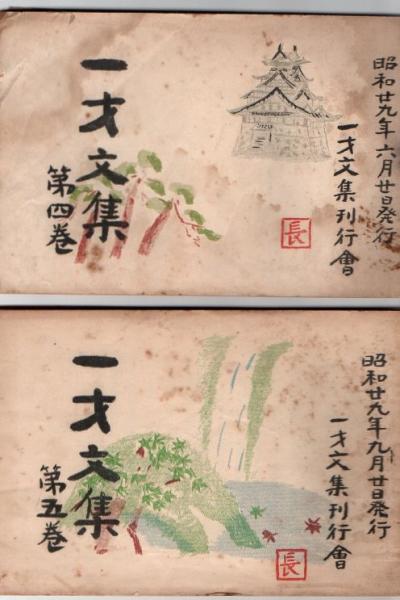 昭和廿九年六月廿日発行
一才文集刊行會
長
一才文集
第四巻
昭和廿九年九月廿日発行
一才文集刊行會
長
一才文集
第五巻